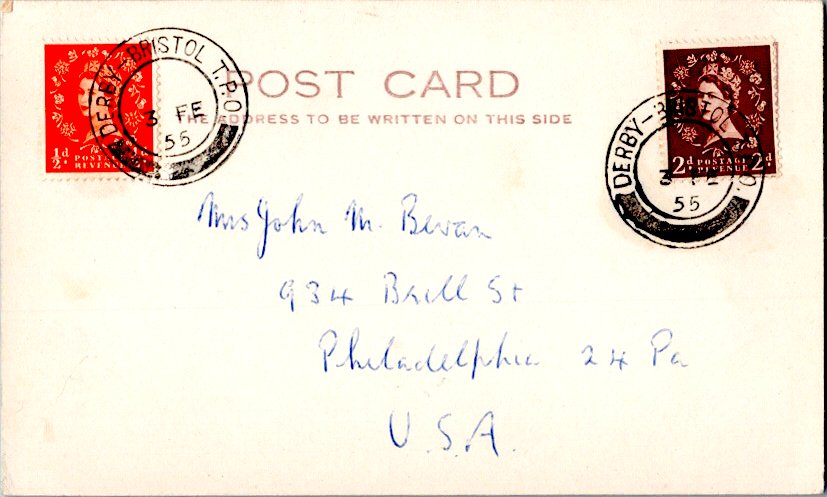 DERBY-BRISTOL T.P.O.
3 FE
55
½d POSTAGE REVENUE
POST CARD
THE ADDRESS TO BE WRITTEN ON THIS SIDE
DERBY-BRISTOL T.P.O.
3 FE
55
2d POSTAGE REVENUE 2d
Mrs John M. Bevan
934 Brill St
Philadelphia 24 Pa
U.S.A.